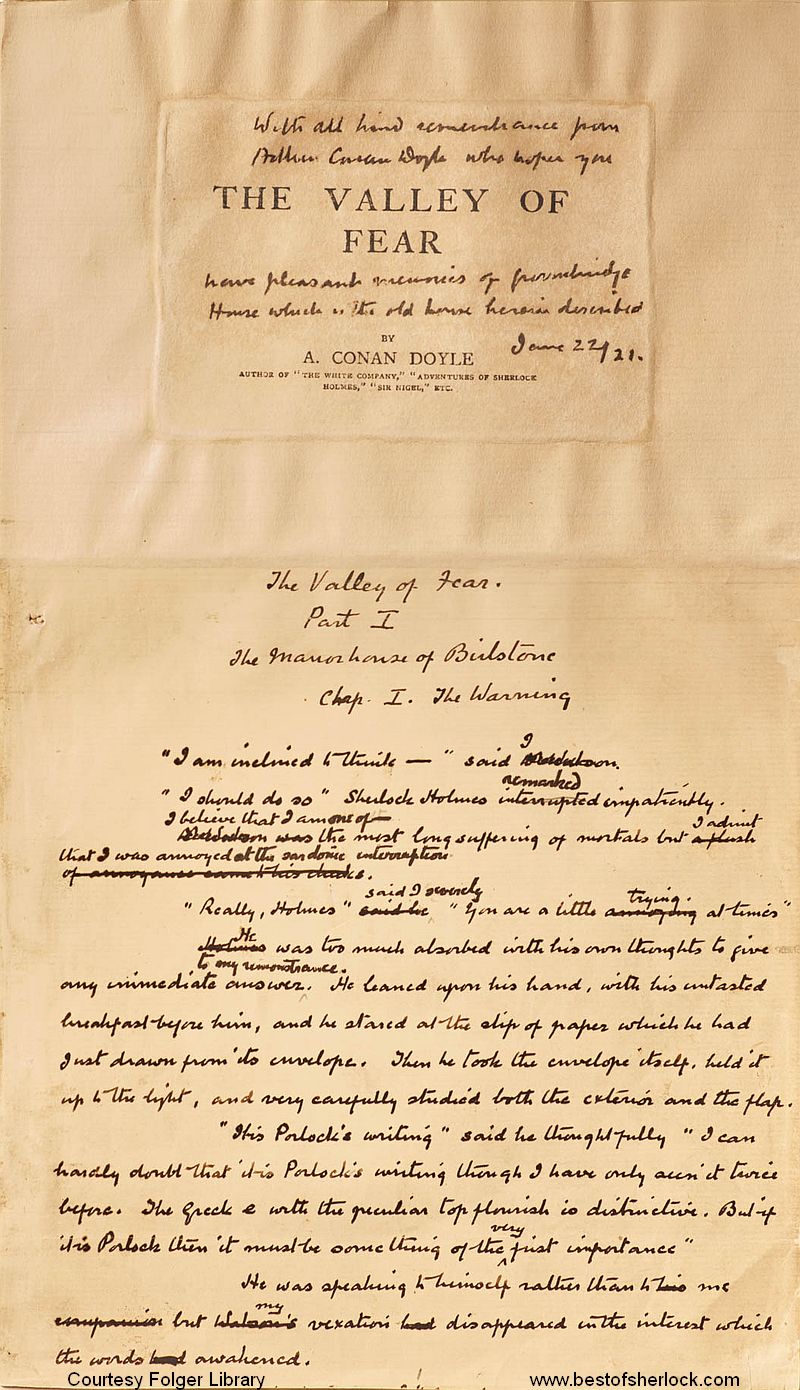 With all kind remembrance from
Arthur Conan Doyle who hopes you
THE VALLEY OF
FEAR
have pleasant memories of Groombridge
House which is the old house herein described
BY
A. CONAN DOYLE
June 22/21.
AUTHOR OF "THE WHITE COMPANY," "ADVENTURES OF SHERLOCK
HOLMES," "SIR NIGEL," ETC.
The Valley of Fear.
Part I
The Manor house of Birlstone
Chap. I. The Warning
I
"I am inclined to think — " said Dr Watson.
remarked
"I should do so" Sherlock Holmes interrupted impatiently.
I believe that I am one of
Dr Watson was the most long suffering of mortals but a flush
I admit
that I was annoyed at the sardonic interruption
of annoyance came to his cheeks.
said I severely
trying.
"Really, Holmes" said he "You are a little annoying at times"
He
Holmes was too much absorbed with his own thoughts to give
to my remonstrance.
any immediate answer. He leaned upon his hand, with his untasted
breakfast before him, and he stared at the slip of paper which he had
just drawn from its envelope. Then he took the envelope itself, held it
up to the light, and very carefully studied both the exterior and the flap.
"It is Porlock's writing" said he thoughtfully "I can
hardly doubt that it is Porlock's writing though I have only seen it twice
before. The Greek e with the peculiar top flourish is distinctive. But if
very
it is Porlock then it must be something of the first importance"
He was speaking to himself rather than to his me
my
companion but Watson's vexation had disappeared in the interest which
the words had awakened.
Courtesy Folger Library
www.bestofsherlock.com